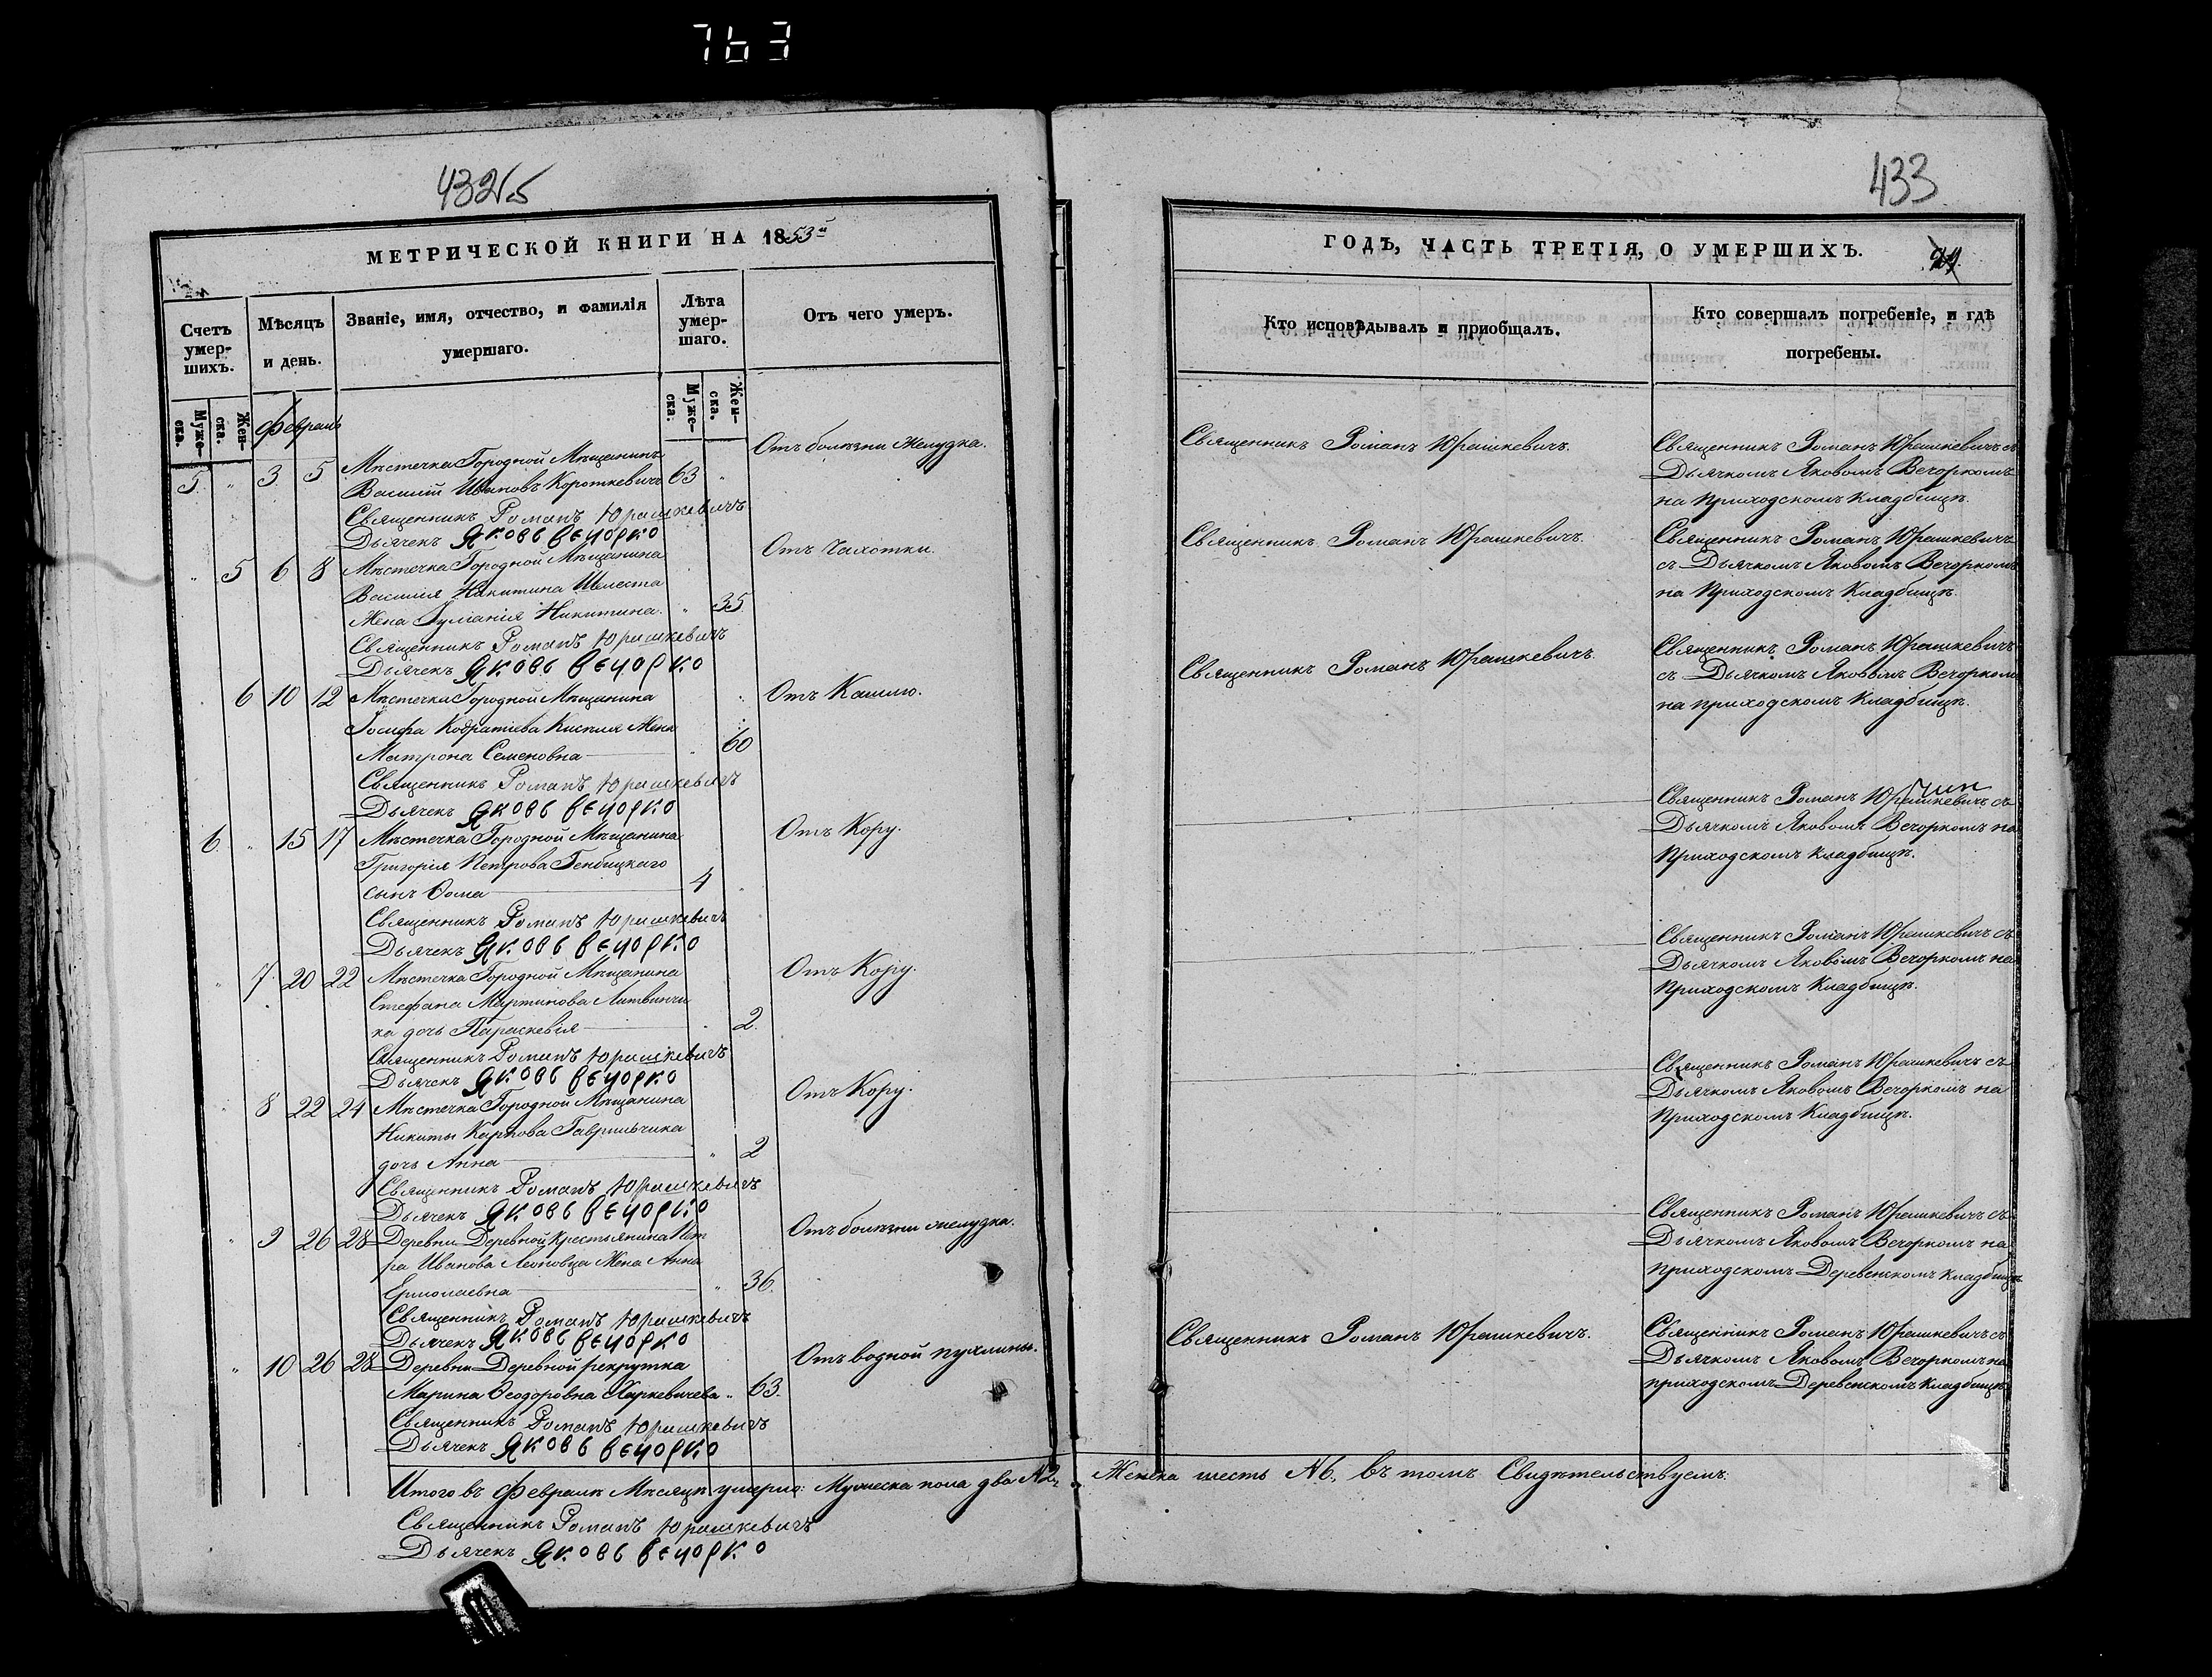 763
432об
МЕТРИЧЕСКОЙ КНИГИ НА 1853й
Счетъ умер-шихъ.
Мѣсяцъ и день.
Званіе, имя, отчество, и фамилія умершаго.
Лѣта умер-шаго.
Отъ чего умеръ.
Муже-ска.
Жен-ска.
Февраль
Муже-ска.
Жен-ска.
5 " 3 5 Мѣстечка Городной Мѣщанинъ
Василій Ивановъ Короткевичъ 63 " Отъ болѣзни Желудка.
Священникъ Романъ Юрашкевичъ
Дьячекъ Яковъ Вечорко
" 5 6 8 Мѣстечка Городной Мѣщанина Отъ Чахотки.
Василія Никитина Шелеста
Жена Іуліанія Никитина " 35
Священникъ Романъ Юрашкевичъ
Дьячекъ Яковъ Вечорко
6 10 12 Мѣстечка Городной Мѣщанина Отъ Кашлю.
Іосифа Кодратіева Киселя Жена
Матрона Семеновна " 60
Священникъ Романъ Юрашкевичъ
Дьячекъ Яковъ Вечорко
6 " 15 17 Мѣстечка Городной Мѣщанина Отъ Кору.
Григорія Петрова
сынъ Ѳома 4 "
Священникъ Романъ Юрашкевичъ
Дьячекъ Яковъ Вечорко
" 7 20 22 Мѣстечка Городной Мѣщанина Отъ Кору.
Стефана Мартинова Литвинчу
ка дочь Параскевія " 2.
Священникъ Романъ Юрашкевичъ
Дьячекъ Яковъ Вечорко
" 8 22 24 Мѣстечка Городной Мѣщанина Отъ Кору.
Никиты Карпова Гаврильчика
дочь Анна " 2
Священникъ Романъ Юрашкевичъ
Дьячекъ Яковъ Вечорко
" 9 26 28 Деревни Деревной крестьянина Пет Отъ болѣзни желудка.
ра Иванова Леоновца Жена Анна
Ермолаевна " 36.
Священникъ Романъ Юрашкевичъ
Дьячекъ Яковъ Вечорко
" 10 26 28 Деревни Деревной рекрутка Отъ водной пухлины.
Марина Ѳеодоровна Харкевичева " 63.
Священникъ Романъ Юрашкевичъ
Дьячекъ Яковъ Вечорко
Итого въ Февралѣ Мѣсяцѣ умерло: Мужеска пола два №2,
Священникъ Романъ Юрашкевичъ
Дьячекъ Яковъ Вечорко
433
ГОДЪ, ЧАСТЬ ТРЕТІЯ, О УМЕРШИХЪ.
Кто исповѣдывалъ и приобщалъ.
Кто совершалъ погребеніе, и гдѣ погребены.
Священникъ Романъ Юрашкевичъ. Священникъ Романъ Юрашкевичъ съ
Дьячкомъ Яковомъ Вечоркомъ
на Приходскомъ Кладбищѣ.
Священникъ Романъ Юрашкевичъ. Священникъ Романъ Юрашкевичъ
съ Дьячкомъ Яковомъ Вечоркомъ
на Приходскомъ Кладбищѣ.
Священникъ Романъ Юрашкевичъ. Священникъ Романъ Юрашкевичъ
съ Дьячкомъ Яковомъ Вечоркомъ
на приходскомъ Кладбищѣ.
Священникъ Романъ Юрашкевичъ съ
Дьячкомъ Яковомъ Вечоркомъ на
Приходскомъ Кладбищѣ.
Священникъ Романъ Юрашкевичъ съ
Дьячкомъ Яковомъ Вечоркомъ на
Приходскомъ Кладбищѣ.
Священникъ Романъ Юрашкевичъ съ
Дьячкомъ Яковомъ Вечоркомъ на
Приходскомъ Кладбищѣ.
Священникъ Романъ Юрашкевичъ съ
Дьячкомъ Яковомъ Вечоркомъ на
приходскомъ Деревенскомъ кладбищѣ
Священникъ Романъ Юрашкевичъ. Священникъ Романъ Юрашкевичъ съ
Дьячкомъ Яковомъ Вечоркомъ на
приходскомъ Деревенскомъ кладбищѣ
Женска шесть №6., въ томъ Свидѣтельствуемъ: